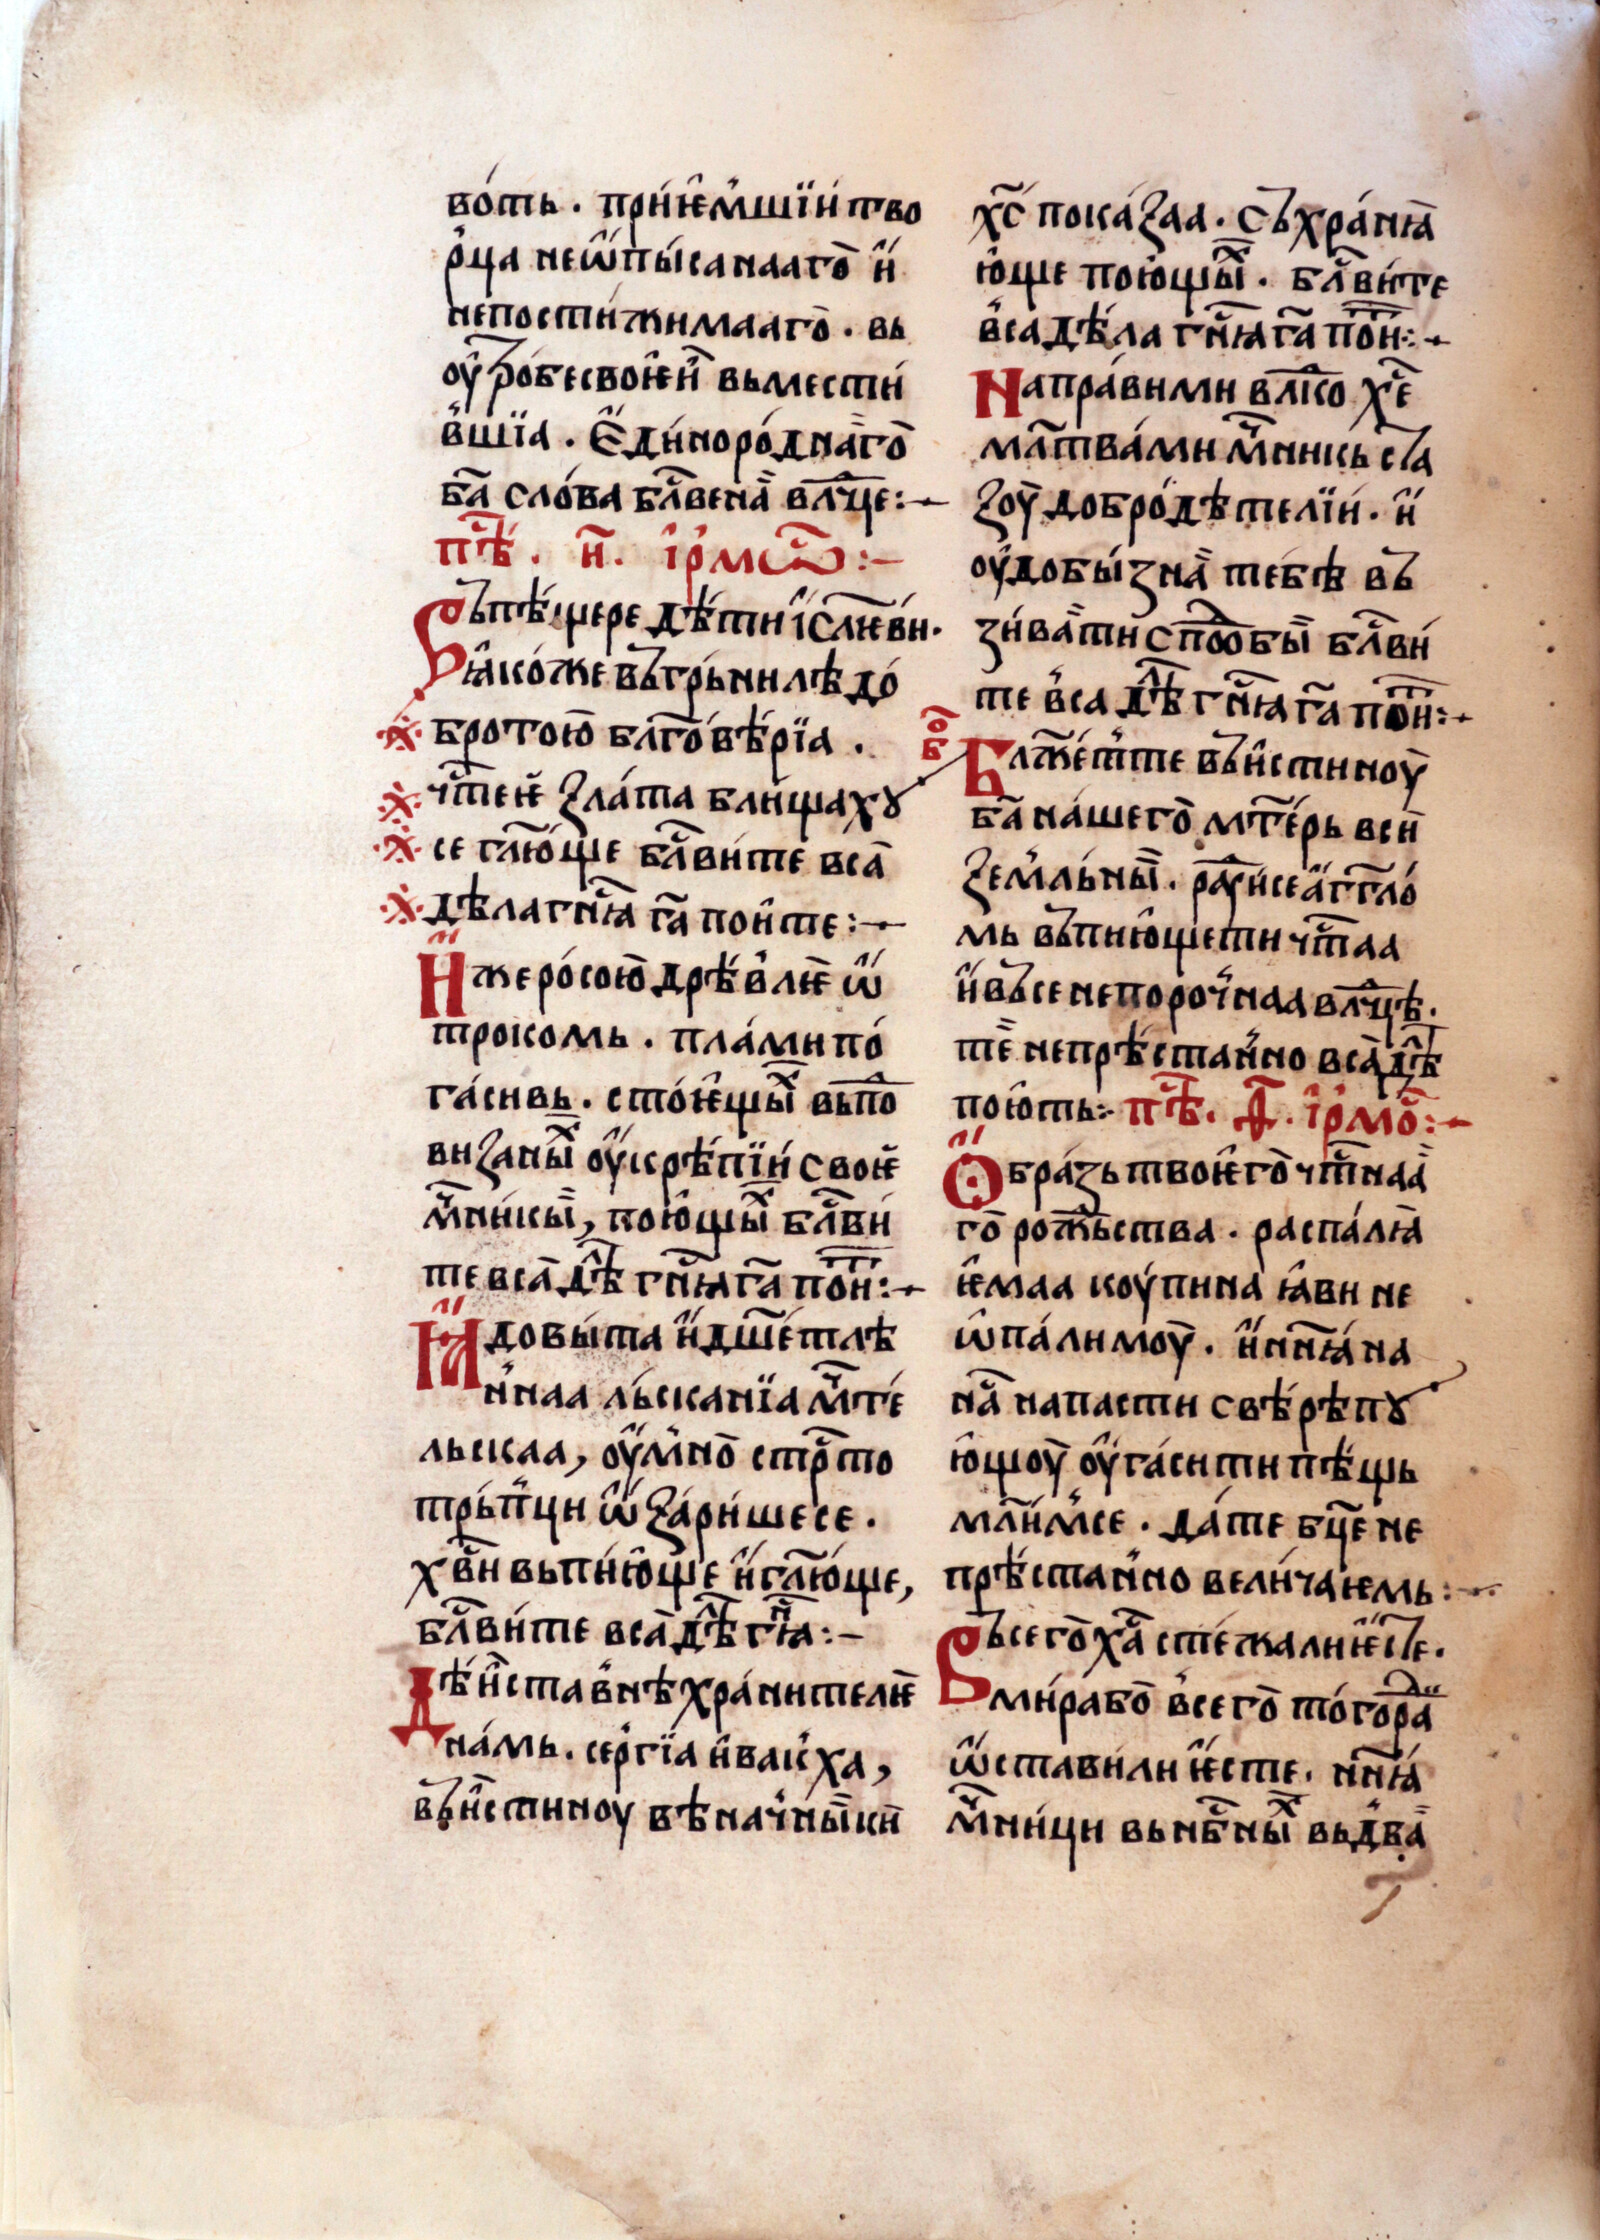 во́ть. прїи́ѥ́мшїи́ тво
р҆ца неѡ҃пы́санааго̄ и҆҆
непости́жимааго̄. вь
оу҆тро́бе своѥ҆и̑ вьмести́
в҆шїа. Є҆҆ди́норо́дна̏го̄
ба҃ сло́ва бл҃вена̏ вл҃чце:~
пѣ҇́. и҃. і҆рмѡ҇:~
Въпѣ́щере дѣ́ти і҆҆сл҃ѥ́ви.
ꙗ҆ко́же въгрь́нилѣ до́
бротою̄ бл҃гові́рїа.
ч҇тѥ҆ зла́та бли́щахꙋ
се гл҃ю́ще бл҃ви́те вса̄
дѣла гн҇ꙗ га҃ пои҆те:~
И҆҆же ро́сою̄ дрѣ́в҆лѥ ѡ҆҆
трокомь. пла́мы по́
га́сивь. стоѥ҆щыⷯ вьпѡ҇
ви́заныⷯ оу҆҆крѣ́пїи́ своѥ҆
мч҃ни́кы̏, пою҆щыⷯ бл҃ви́
те вса̄ дѣⷧ҇ гн҇ꙗ га҃ поиⷮ:~
Ꙗ҆҆довы́та и҆҆дш҃е́тлѣ
н҆наа ль́сканїа мч҃те́
льскаа, оу҆҆м҆но̄ стрⷭ҇то
трь́п҆ци ѡ҆҆за́ри́шесе.
хв҃и вьпи́ю҆ще и҆҆гл҃ю́ще,
бл҃ви́те вса̄ дѣⷧ҇ гн҇ꙗ:~
Дѣи҆ста в҆нѣ хра́нителѥ҆
на́мь. се́ргїа и҆ва́к҆ха,
въи҆стиноу вѣнач҆ны̏ки̏
хс҃ пока́заа. съхра́нꙗ̄
ю҆ще пою҆щыⷯ. бл҃ви́те
в҆са дѣ́ла гн҇ꙗ га҃ поиⷮ:~
Напра́вими вл҃ко хе҃
мл҃тва́ми мч҃никь ста
зоу̏ добро́дѣтелїи́. и҆҆
оу҆добы́зна̏ тебѣ въ
зи́ва̏ти сподⷪ҇бы̏ бл҃ви́
те в҆са дѣⷧ҇ гн҇ꙗ га҃ поиⷮ:~
бо҇
Блж҃е́м҆те въи҆стиноу̏
ба҃ на́шего̄ мт҃ерь вси̏
зем҆ль́ны̏. раⷣуи́се а҆҆гг҃ло́
мь въпию҆щети ч҇таа
и҆҆въсе непороч҆наа вл҃чцѣ.
те̏ непрѣ́стан҆но вса̄ дѣⷧ҇
пою҆ть:~ пѣ҇. ѳ҃. і҆рмо҇:~
Ѻ҆҆бра́зь твоѥ҆го̄ ч҇тнаа̏
го̄ рожⷣь́ства. распа́лꙗ̄
ѥ҆маа коу́пина ꙗ҆ви не
ѡ҆па́лимоу̏. и҆҆нн҃ꙗ́ на
на҇ напасти свѣ́рѣпꙋ
ю҆щоу̏ оу҆҆га́сити пѣ́щь
мл҃и́м҆се. да́те бц҃е не
прѣ́стан҆но вели́чаѥмь:~
Въсего̄ ха҃ сте́жали ѥ҆҆сте.
ми́рабо̄ в҆сего̄ то́го раⷣ
ѡ҆҆ста́вили ѥ҆҆сте. нн҃ꙗ́
мч҃ни́ци вьнб҃ныⷯ вьд҆ва̏